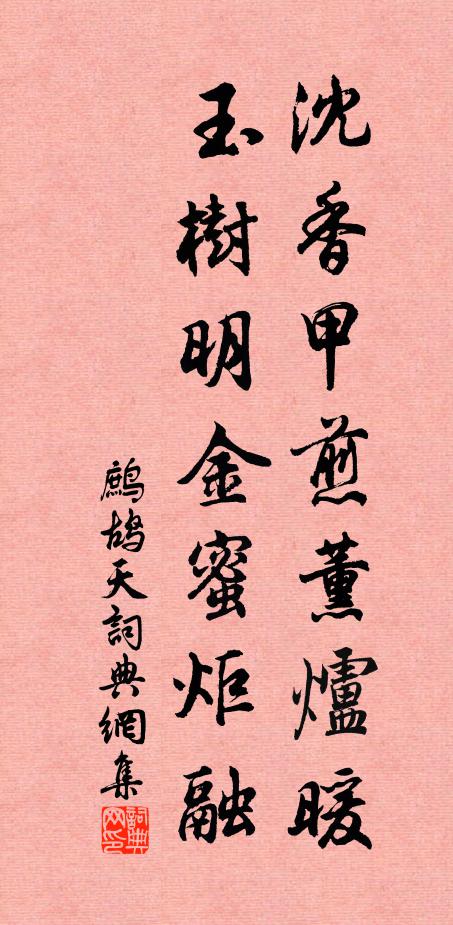 沈香甲煎薰爐暖
玉樹明金蜜炬融
鷓鴣天詞典網集
詞典网印